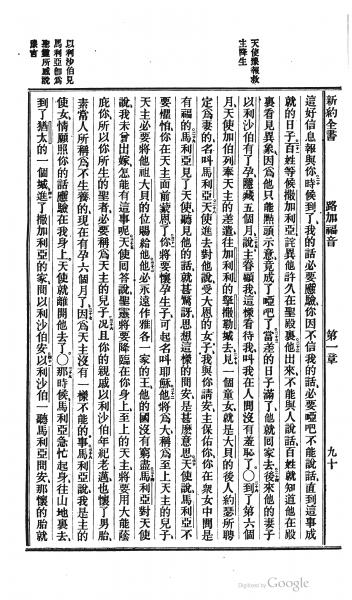 新約全書
路加福音
第一章
九十
天使㨿報救
主降生
以利沙伯見
馬利亞卽爲
聖靈所感說
豫言
這好信息報與你時候到了我的話必要應驗你因不信我的話必要啞吧不能說話直到這事成
就的日子百姓等候撒加利亞詫異他許久在聖殿裏他出來不能與人說話百姓就知道他在殿
裏看見異象因爲他只能點頭示意竟成了啞吧了當差的日子滿了他就回家去後來他的妻子
以利沙伯有了孕隱藏五個月說主眷顧我這樣看待我叫我在人間沒有羞恥了〇到了第六個
月天使加伯列奉天主的差遣往加利利的拏撒勒城去見一個童女就是大闢的後人約瑟所聘
定爲妻的名叫馬利亞天使進去對他說受大恩的女子我與你請安主保佑你你在衆女中間是
有福的馬利亞見了天使聽見他的話就甚驚訝思想這樣的問安是甚麽意思天使說馬利亞不
要懼怕你在天主面前蒙恩了你將要懷孕生子可起名叫耶穌他將爲大稱爲至上天主的兒子
天主必要將他祖大闢的位賜給他他必永遠作雅各一家的王他的國沒有窮盡馬利亞對天使
說我未曾出嫁怎能有這事呢天使囘答說聖靈將要降臨在你身上至上的天主將要用大能蔭
庇你所以你所生的聖者必要稱爲天主的兒子况且你的親戚以利沙伯年紀老邁也懷了男胎
素常人所稱爲不生養的現在有孕六個月了因爲天主沒有一樣不能的事馬利亞說我是主的
使女情願照你的話應驗在我身上天使就離開他去了〇那時候馬利亞急忙起身往山地裏去
到了猶太的一個城進了撒加利亞的家問以利沙伯安以利沙伯一聽馬利亞問安那懷的胎就
Digitized by Google